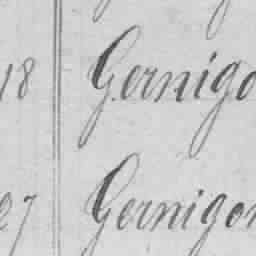 18 Gernigo
27 Gernigon